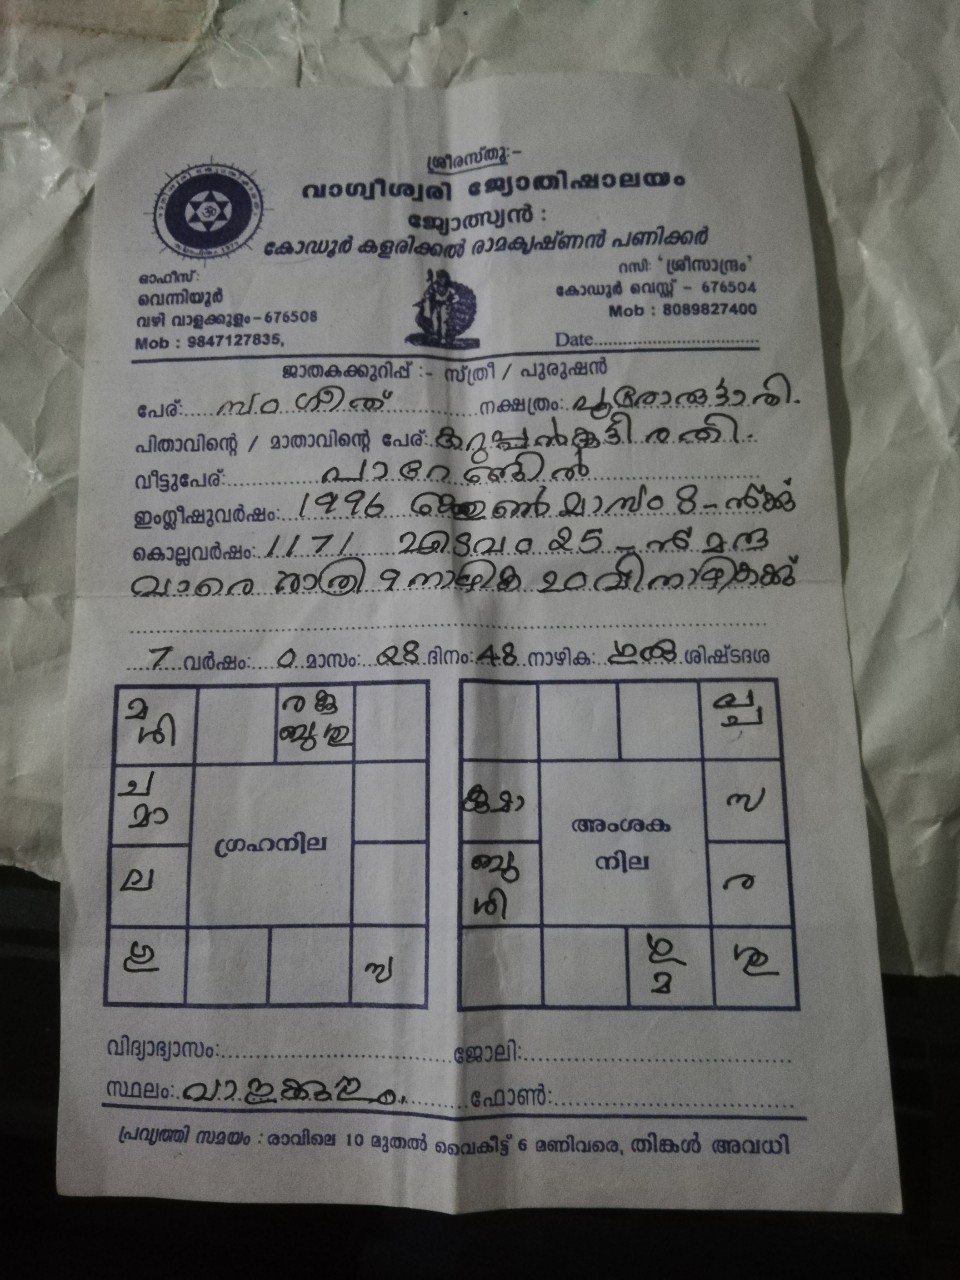 ശ്രീരസ്തു:-
വാഗ്വീശ്വരി ജ്യോതിഷാലയം
ജ്യോത്സ്യൻ :
കോഡൂർ കളരിക്കൽ രാമകൃഷ്ണൻ പണിക്കർ
ഓഫീസ്:
വെന്നിയൂർ
വഴി വാളക്കുളം-676508
Mob : 9847127835,
റസി: 'ശ്രീസാന്ദ്രം'
കോഡൂർ വെസ്റ്റ് - 676504
Mob : 8089827400
Date
ജാതകക്കുറിപ്പ് :- സ്ത്രീ / പുരുഷൻ
പേര്: സംഗീത് നക്ഷത്രം: പൂരോരുട്ടാതി.
പിതാവിന്റെ / മാതാവിന്റെ പേര്: കറുപ്പൻകുട്ടി രതി.
വീട്ടുപേര്:
ഇംഗ്ലീഷുവർഷം: 1996 ജൂൺ മാസം 8-ന്ക്ക്
കൊല്ലവർഷം: 1171 ഇടവം 25-ന്
രാത്രി 9 നാഴിക 20 വിനാഴികക്ക്
7 വർഷം: 0 മാസം: 28 ദിനം: 48 നാഴിക: ഗുരു ശിഷ്ടദശ
മ ശി ര കു ബു ശു
ച മാ
ഗ്രഹനില
ല
ഗു സ
ല ച
കു മാ സ
അംശക നില
ബു ശി ര
ഗു മ ശു
വിദ്യാഭ്യാസം: ജോലി:
സ്ഥലം: വാളക്കുളം. ഫോൺ:
പ്രവൃത്തി സമയം : രാവിലെ 10 മുതൽ വൈകീട്ട് 6 മണിവരെ, തിങ്കൾ അവധി